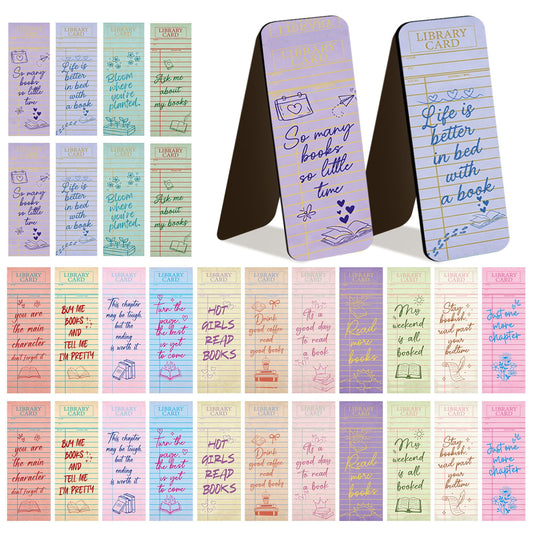 LIBRARY
CARD
So many
books
so little
time
LIBRARY
CARD
Life is
better
in bed
with
a book
LIBRARY
CARD
Bloom
where
you're
planted.
LIBRARY
CARD
Ask me
about
my books
LIBRARY
CARD
So many
books
so little
time
LIBRARY
CARD
Life is
better
in bed
with
a book
LIBRARY
CARD
So many
books
so little
time
LIBRARY
CARD
Life is
better
in bed
with
a book
LIBRARY
CARD
Bloom
where
you're
planted.
LIBRARY
CARD
Ask me
about
my books
LIBRARY
CARD
you are
the main
character
don't forget it
LIBRARY
CARD
BUY ME
BOOKS
AND
TELL ME
I'M PRETTY
LIBRARY
CARD
This chapter
may be tough,
but the
ending
is worth it.
LIBRARY
CARD
Turn the
page, the
best is
yet to
come
LIBRARY
CARD
HOT
GIRLS
READ
BOOKS
LIBRARY
CARD
Drink
good coffee
read
good books
LIBRARY
CARD
It's a
good day
to read
a book
LIBRARY
CARD
Read
more
books.
LIBRARY
CARD
My
weekend
is all
booked
LIBRARY
CARD
Stay
bookish
read past
your
bedtime
LIBRARY
CARD
Just one
more
chapter
LIBRARY
CARD
you are
the main
character
don't forget it
LIBRARY
CARD
BUY ME
BOOKS
AND
TELL ME
I'M PRETTY
LIBRARY
CARD
This chapter
may be tough,
but the
ending
is worth it.
LIBRARY
CARD
Turn the
page, the
best is
yet to
come
LIBRARY
CARD
HOT
GIRLS
READ
BOOKS
LIBRARY
CARD
Drink
good coffee
read
good books
LIBRARY
CARD
It's a
good day
to read
a book
LIBRARY
CARD
Read
more
books.
LIBRARY
CARD
My
weekend
is all
booked
LIBRARY
CARD
Stay
bookish
read past
your
bedtime
LIBRARY
CARD
Just one
more
chapter